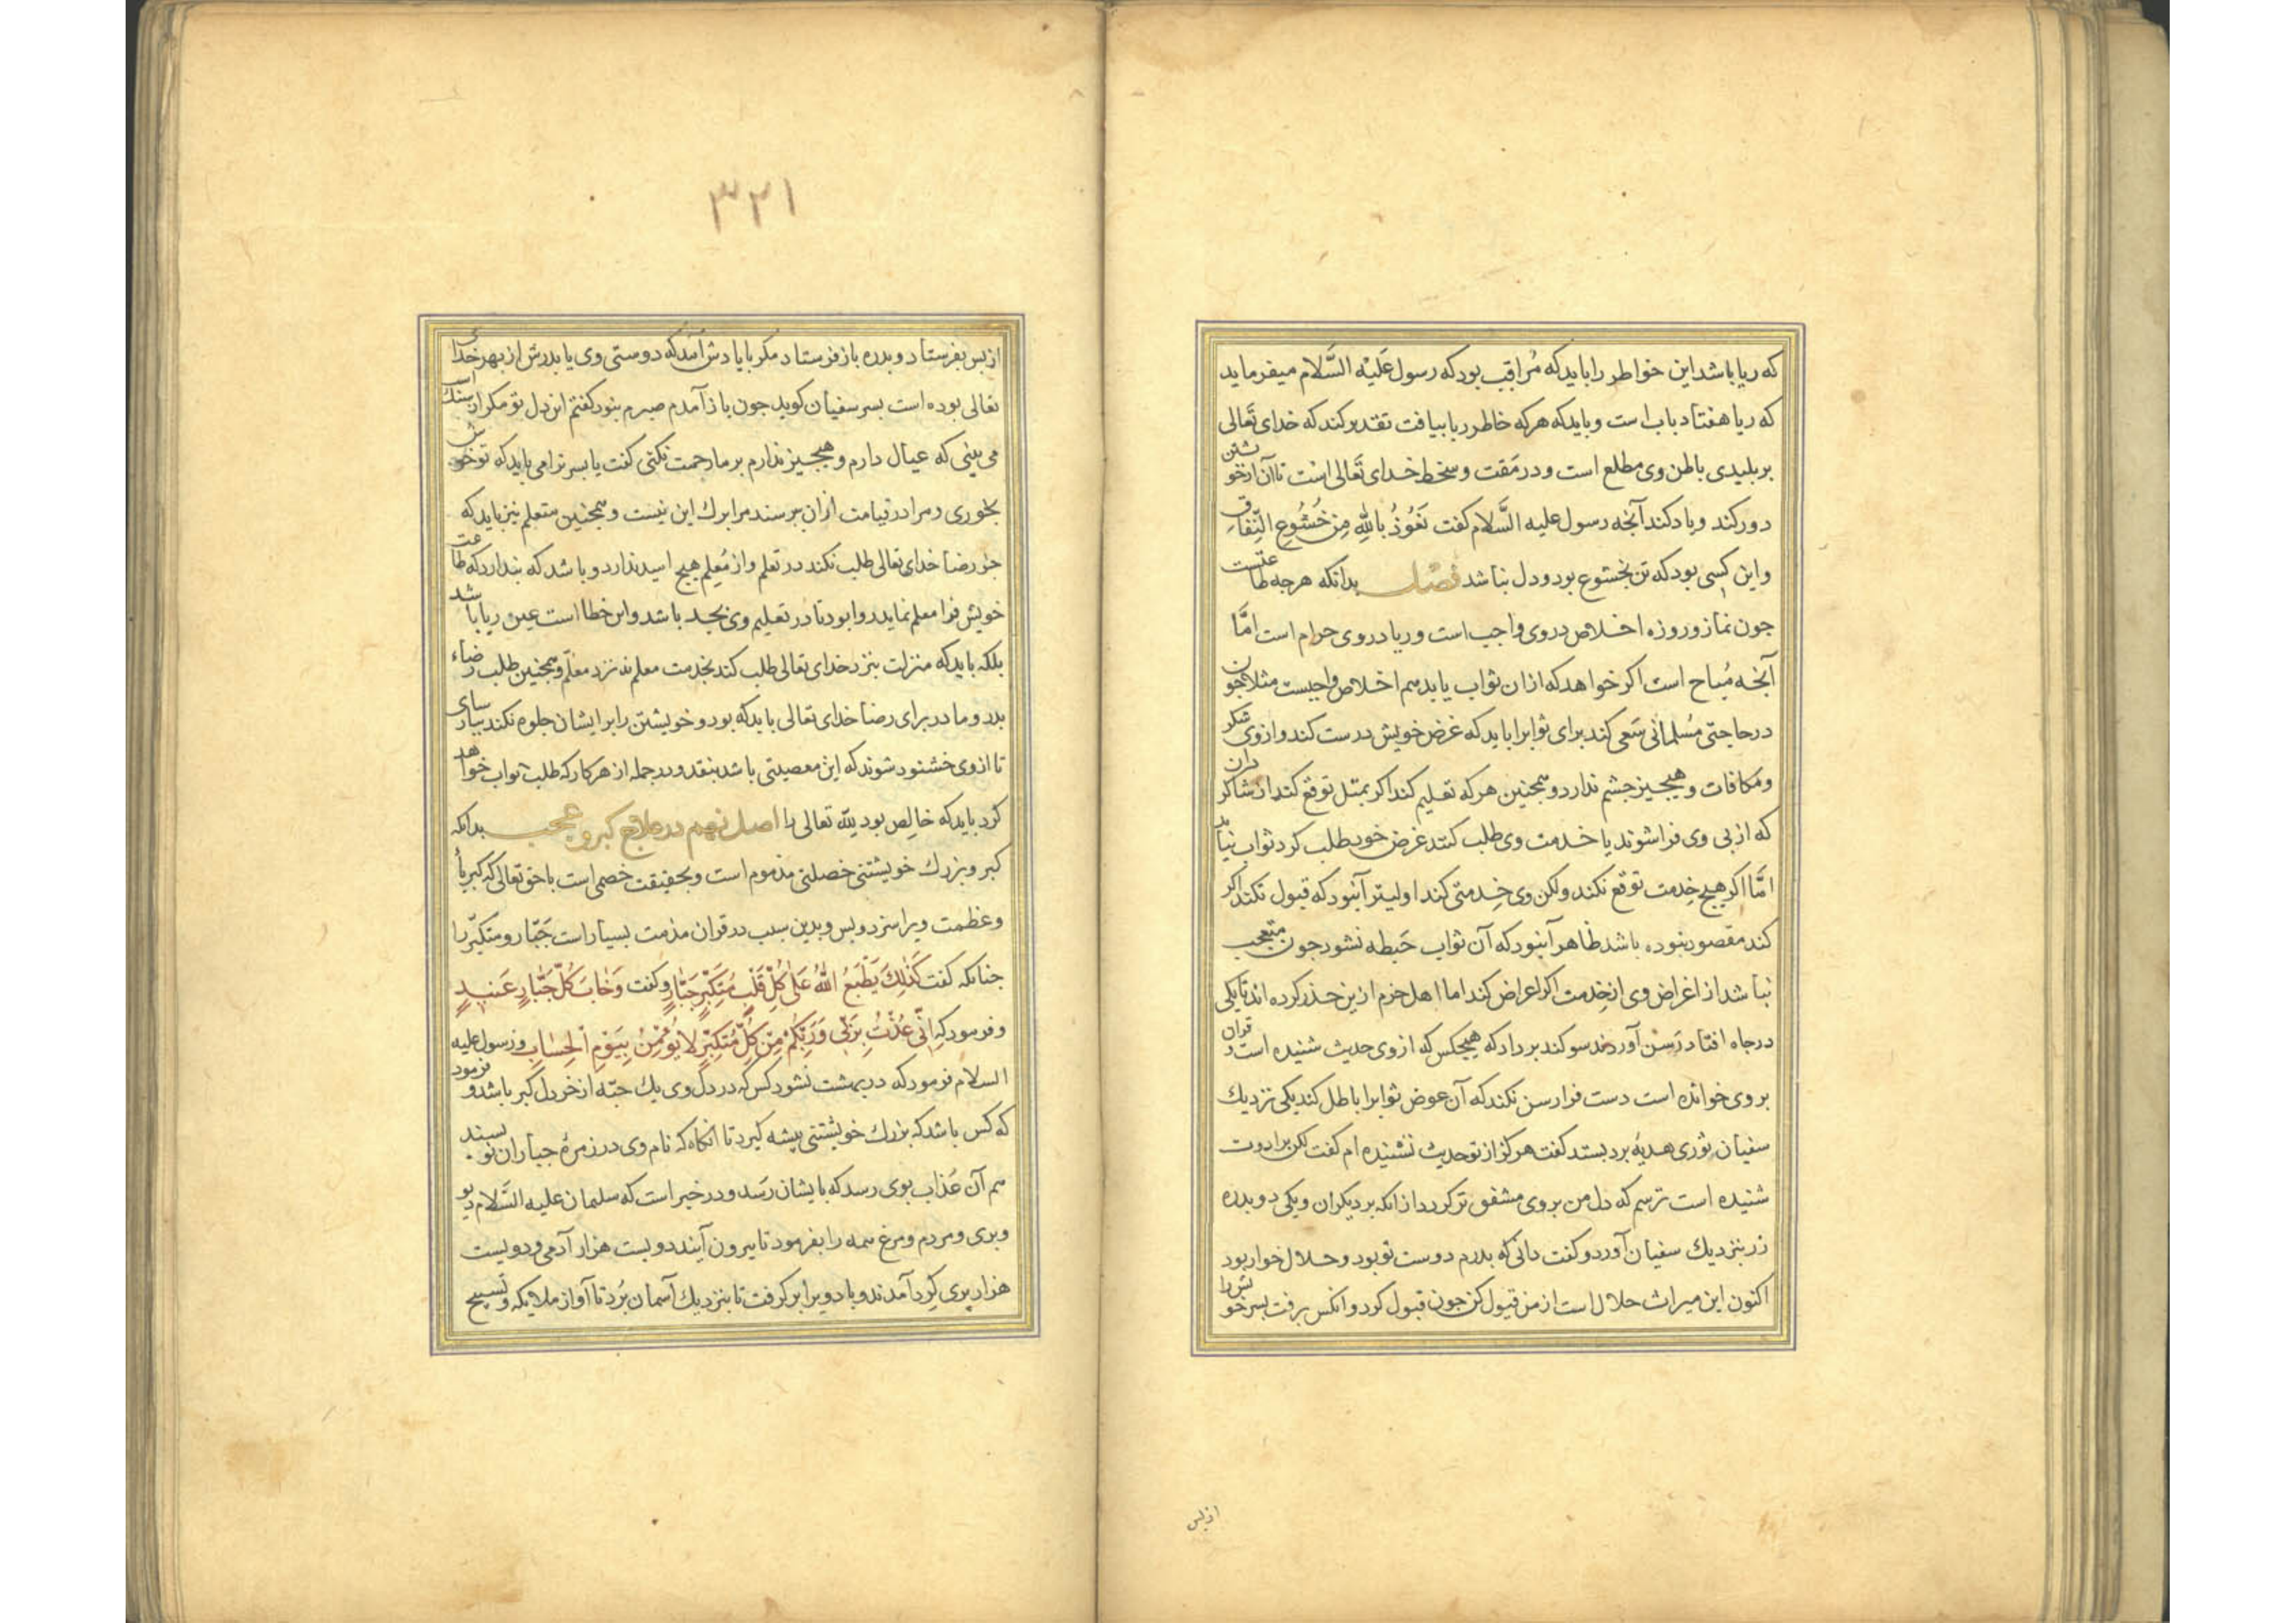 که ریا باشد این خواطر را باید که مُراقِب بود که رسول عَلَیْهِ السَّلام میفرماید
که ریا هفتاد باب است و باید که هرکه خاطر ریا بیافت تقدیر کند که خدای تَعالی
بر بلیدی باطن وی مطلع است و در مَقت و سخط خدای تَعالی است تا آن از خویشتن
دور کند و یاد کند آنجه رسول علیه السَّلام کفت نَعُوذُ بِاللهِ مِن خُشُوعِ النِّفاق
و این کسی بود که تن بخشوع بود و دل نباشد فصل بدانکه هرجه طاعتست
جون نماز و روزه اخلاص در وی واجب است و ریا در وی حرام است امَّا
آنجه مُباح است اکر خواهد که ازان ثواب یابد هم اخلاص واجبست مثلا جون
در حاجتی مُسلمانی سَعی کند برای ثوابرا باید که غرض خویش درست کند و از وی شکر
و مکافات و هیجـیز جشم ندارد و همجنین هرکه تعلیم کند اکر بمثل توقع کند از شاکردان
که از بی وی فراشوند یا خدمت وی طلب کنند غرض خود طلب کرد ثواب نیابد
امَّا اکر هیج خِدمت توقع نکند ولکن وی خِدمتی کند اولیتر آنبود که قبول نکند اکر
کند مقصور نبوده باشد ظاهر آنبود که آن ثواب حَبطه نشود جون متعجب
نباشد از اعراض وی از خِدمت اکر اعراض کند اما اهل حزم ازین حذر کرده اند تا یکی
در جاه افتاد رَسَن آوردند سوکند برداد که هیجکس که از وی حدیث شنیده است و قران
بر وی خوانده است دست فرا رسن نکند که آن عوض ثوابرا باطل کند یکی نزدیك
سفیان ثوری هدیهٔ برد بستد کفت هرکز از تو حدیث نشنیده ام کفت لکن برادرت
شنیده است ترسم که دل من بر وی مشفق تر کردد ازانکه بر دیکران و یکی دو بدره
زر بنزدیك سفیان آورد و کفت دانی که بدرم دوست تو بود و حلال خوار بود
اکنون این میراث حلال است از من قبول کن جون قبول کرد و انکس برفت بسر خویش را
از بس
۳۲۱
از بس بفرستاد و بدره باز فرستاد مکر با یادش آمد که دوستی وی با بدرش از بهر خدای
تعالی بوده است بسر سفیان کوید جون باز آمدم صبرم نبود کفتم این دل تو مکر از سنك است
می بینی که عیال دارم و هیجـیز ندارم بر ما رحمت نکنی کفت یا بسر ترا می باید که تو خوش
بخوری و مرا در قیامت ازان برسند مرا برك این نیست و همجنین متعلم نیز باید که
جز رضا خدای تعالی طلب نکند در تعلم و از مُعلِم هیج امید ندارد و باشد که بندارد که طاعت
خویش فرا معلم نماید روا بود تا در تعلیم وی بجد باشد و این خطا است عین ریا باشد
بلکه باید که منزلت بنزد خدای تعالی طلب کند بخدمت معلم نه نزد معلّم و همجنین طلب رضاء
بدر و مادر برای رضا خدای تعالی باید که بود و خویشتن را بر ایشان جلوه نکند ببارسای
تا از وی خشنود شوند که این معصیتی باشد بنقد و در جمله از هر کار که طلب ثواب خواهد
کرد باید که خالِص بود لله تعالی را اصل نهم در علاج کبر و عجب بدانکه
کبر و بزرك خویشتنی خصلتی مذموم است و بحقیقت خصمی است با حق تعالی که کبریأ
و عَظمت ویرا سزد و بس و بدین سبب در قران مذمت بسیار است جَبّار و متکبّر را
جنانکه کفت کَذٰلِكَ یَطْبَعُ اللهُ عَلٰی کُلِّ قَلْبِ مُتَکَبِّرٍ جَبَّارٍ و کفت وَخابَ کُلُّ جَبَّارٍ عَنیدٍ
و فرمود که اِنّی عُذْتُ بِرَبّی وَرَبِّکُمْ مِنْ کُلِّ مُتَکَبِّرٍ لا یُؤْمِنُ بِیَوْمِ الْحِسٰابِ و رسول علیه
السلام فرمود که در بهشت نشود کس که در دل وی یك حبّه از خردل کبر باشد و فرمود
که کس باشد که بزرك خویشتنی پیشه کیرد تا انکاه که نام وی در زمرهٔ جباران نویسند
هم آن عَذاب بوی رسد که بایشان رَسَد و در خبر است که سلیمان علیه السَّلام دیو
و بری و مردم و مرغ همه را بفرمود تا بیرون آیند دویست هزار آدمی و دویست
هزار پری کِرد آمدند و باد ویرا بر کرفت تا بنزدیك آسمان بُرد تا آواز ملایکه و تَسبیح